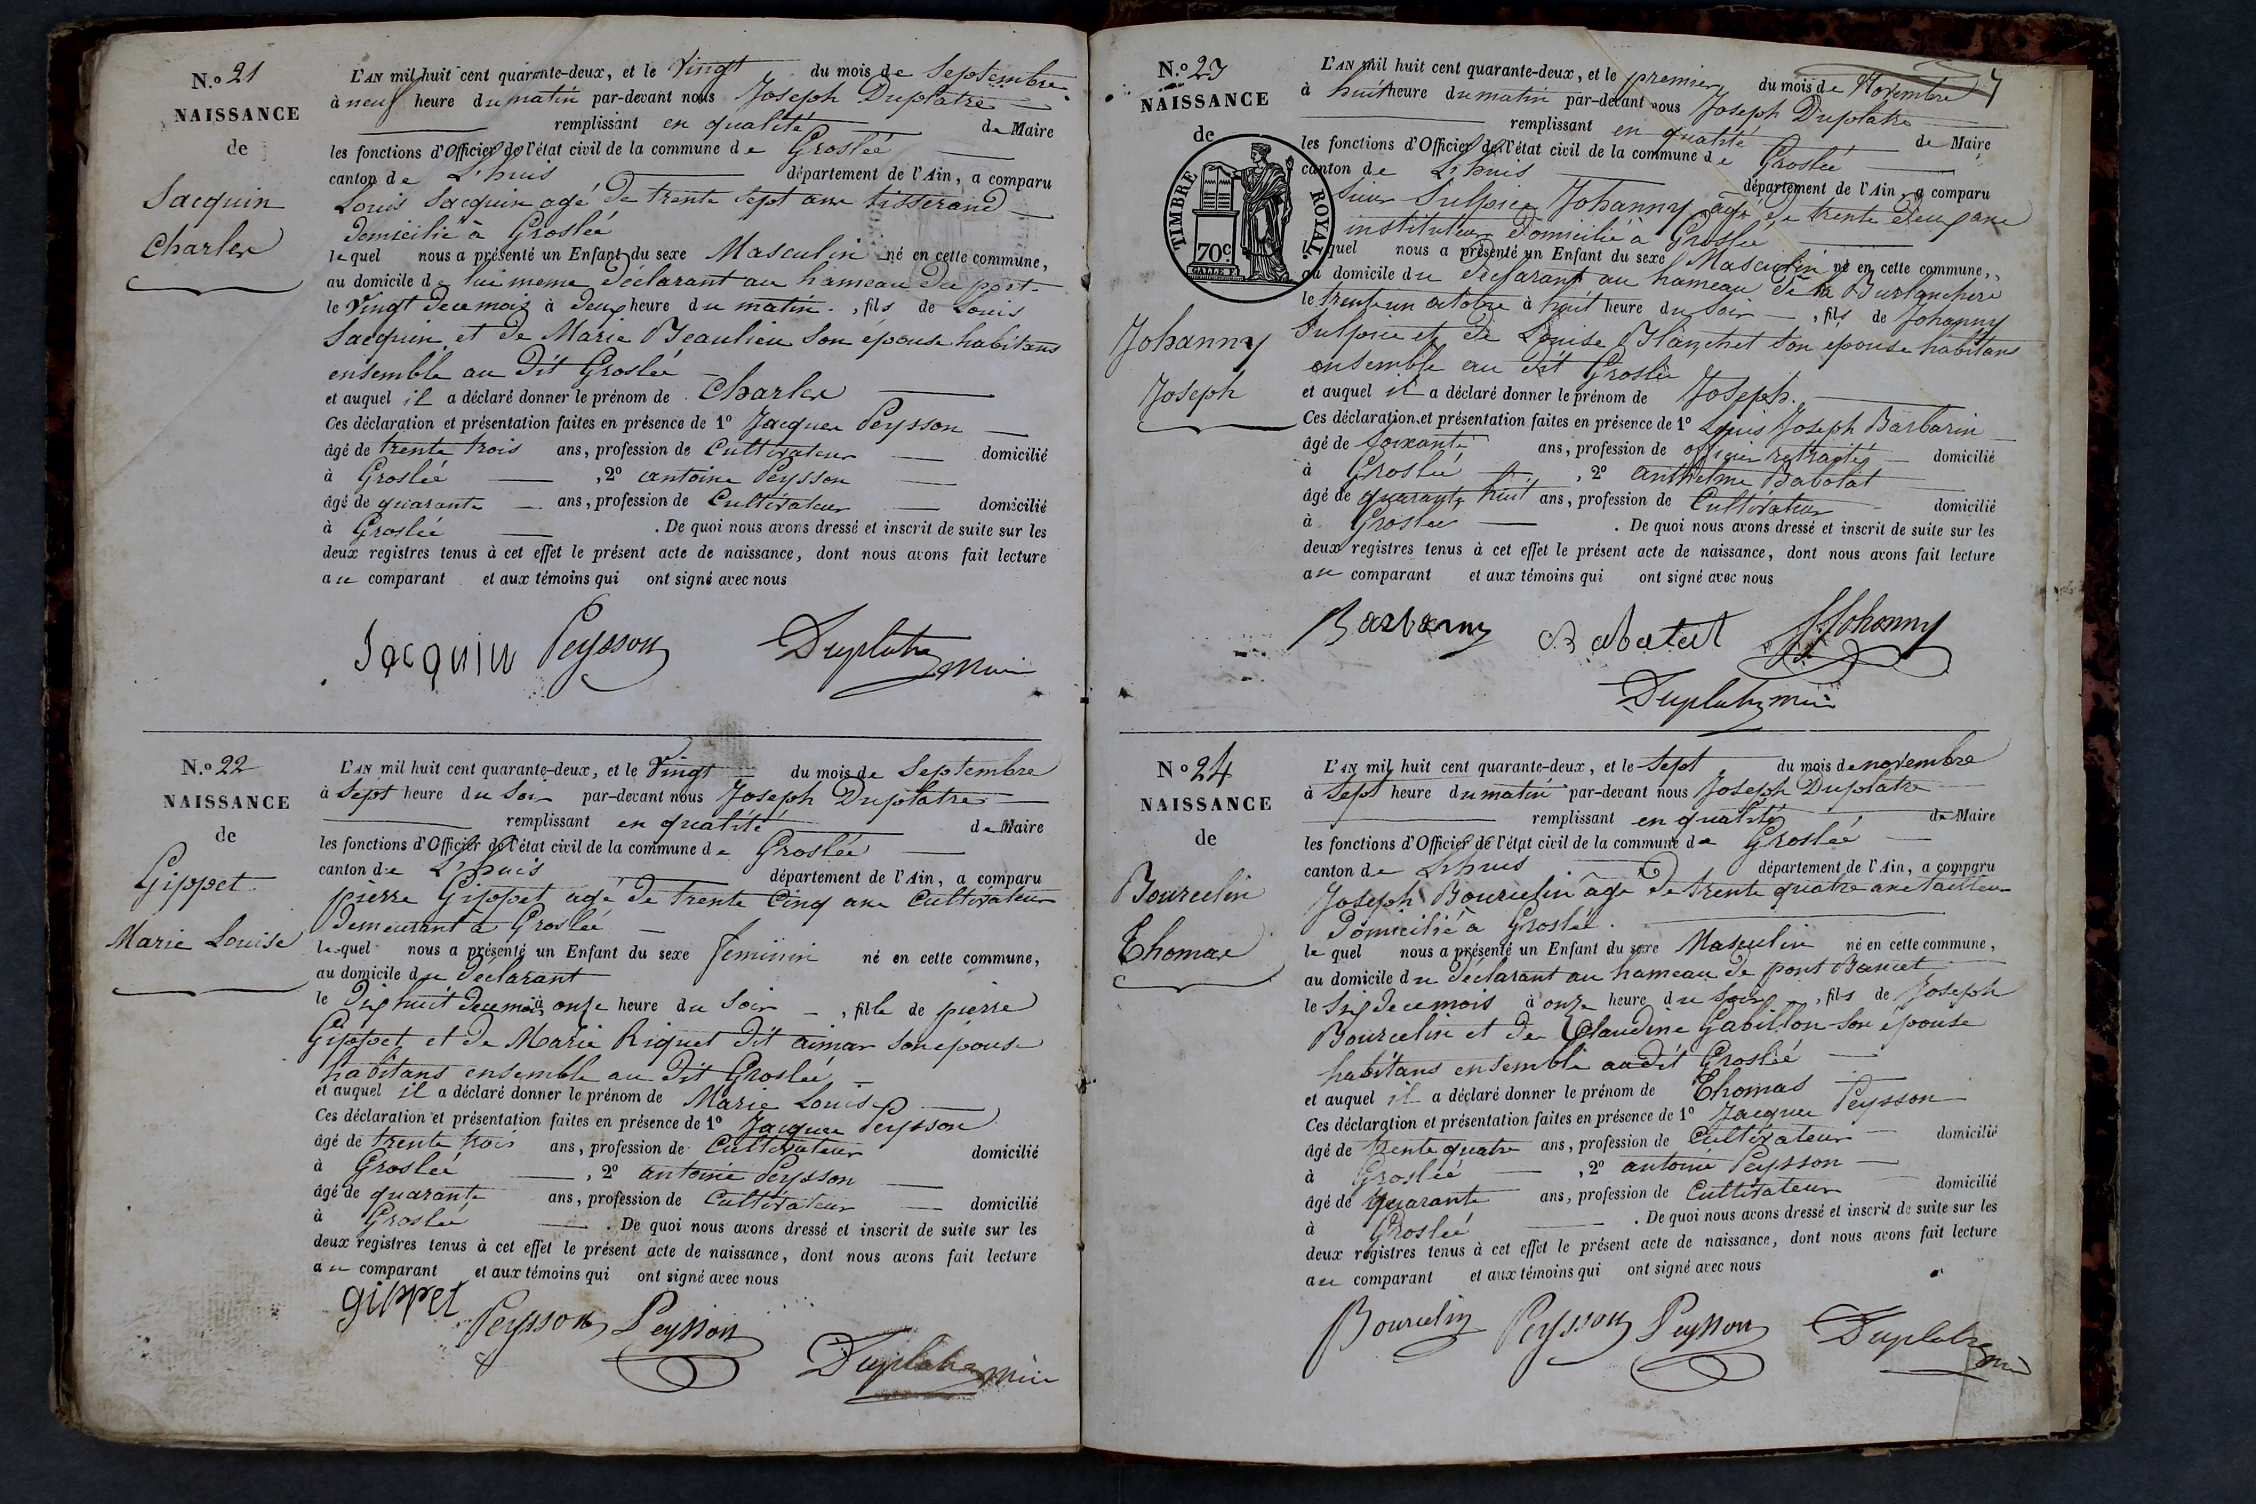 N.o 21
NAISSANCE
de
Jacquin
Charles
L'AN mil huit cent quarante-deux, et le Vingt du mois de Septembre
à neuf heure du matin par-devant nous Joseph Duplatre
remplissant en qualité de Maire
les fonctions d'Officier de l'état civil de la commune de Groslée
canton de L'huis département de l'Ain, a comparu
Louis Jacquin agé de trente sept ans tisserand
domicilié à Groslée
lequel nous a présenté un Enfant du sexe Masculin né en cette commune,
au domicile de lui meme déclarant au hameau du port
le Vingt de ce mois à deux heure du matin, fils de Louis
Jacquin et de Marie Beaulieu son épouse habitans
ensemble au dit Groslée
et auquel il a déclaré donner le prénom de Charles
Ces déclaration et présentation faites en présence de 1o Jacques Peysson
âgé de trente trois ans, profession de Cultivateur domicilié
à Groslée , 2o antoine Peysson
âgé de quarante ans, profession de Cultivateur domicilié
à Groslée . De quoi nous avons dressé et inscrit de suite sur les
deux registres tenus à cet effet le présent acte de naissance, dont nous avons fait lecture
au comparant et aux témoins qui ont signé avec nous
Jacquin Peysson Duplatre Maire
N.o 22
NAISSANCE
de
Gippet
Marie Louise
L'AN mil huit cent quarante-deux, et le Vingt du mois de Septembre
à Sept heure du Soir par-devant nous Joseph Duplatre
remplissant en qualité de Maire
les fonctions d'Officier de l'état civil de la commune de Groslée
canton de L'huis département de l'Ain, a comparu
pierre Gippet agé de trente Cinq ans Cultivateur
demeurant à Groslée
lequel nous a présenté un Enfant du sexe feminin né en cette commune,
au domicile du déclarant
le dix huit de ce mois à onze heure du Soir , fille de pierre
Gippet et de Marie Riquet dit aimar son épouse
habitans ensemble au dit Groslée
et auquel il a déclaré donner le prénom de Marie Louise
Ces déclaration et présentation faites en présence de 1o Jacques Peysson
âgé de trente trois ans, profession de Cultivateur domicilié
à Groslée , 2o antoine Peysson
âgé de quarante ans, profession de Cultivateur domicilié
à Groslée . De quoi nous avons dressé et inscrit de suite sur les
deux registres tenus à cet effet le présent acte de naissance, dont nous avons fait lecture
au comparant et aux témoins qui ont signé avec nous
gippet Peysson Peysson
Duplatre Maire
N.o 23
NAISSANCE
de
TIMBRE ROYAL
70c.
Johanny
Joseph
L'AN mil huit cent quarante-deux, et le premier du mois de Novembre
à huit heure du matin par-devant nous Joseph Duplatre
remplissant en qualité de Maire
les fonctions d'Officier de l'état civil de la commune de Groslée
canton de L'huis département de l'Ain, a comparu
Sieur Sulpice Johanny agé de trente deux ans
instituteur domicilié à Groslée
lequel nous a présenté un Enfant du sexe Masculin né en cette commune,
au domicile du déclarant au hameau de la Burlanchere
le trente un octobre à huit heure du Soir , fils de Johanny
Sulpice et de Louise Blanchet son épouse habitans
ensemble au dit Groslée
et auquel il a déclaré donner le prénom de Joseph.
Ces déclaration et présentation faites en présence de 1o Louis Joseph Barbarin
âgé de Soixante ans, profession de officier retraité domicilié
à Groslée , 2o anthelme Babolat
âgé de quarante huit ans, profession de Cultivateur domicilié
à Groslée . De quoi nous avons dressé et inscrit de suite sur les
deux registres tenus à cet effet le présent acte de naissance, dont nous avons fait lecture
au comparant et aux témoins qui ont signé avec nous
Babolat S. Johanny
Duplatre Maire
N.o 24
NAISSANCE
de
Bourcelin
Thomas
L'AN mil huit cent quarante-deux, et le Sept du mois de novembre
à Sept heure du matin par-devant nous Joseph Duplatre
remplissant en qualité de Maire
les fonctions d'Officier de l'état civil de la commune de Groslée
canton de L'huis département de l'Ain, a comparu
Joseph Bourcelin âgé de trente quatre ans tailleur
domicilié à Groslée.
lequel nous a présenté un Enfant du sexe Masculin né en cette commune,
au domicile du déclarant au hameau de pont Bancet
le Six de ce mois à onze heure du Soir , fils de Joseph
Bourcelin et de Claudine Gabillon son épouse
habitans ensemble audit Groslée
et auquel il a déclaré donner le prénom de Thomas
Ces déclaration et présentation faites en présence de 1o Jacques Peysson
âgé de trente quatre ans, profession de Cultivateur domicilié
à Groslée , 2o antoine Peysson
âgé de quarante ans, profession de Cultivateur domicilié
à Groslée . De quoi nous avons dressé et inscrit de suite sur les
deux registres tenus à cet effet le présent acte de naissance, dont nous avons fait lecture
au comparant et aux témoins qui ont signé avec nous
Bourcelin Peysson Peysson Duplatre